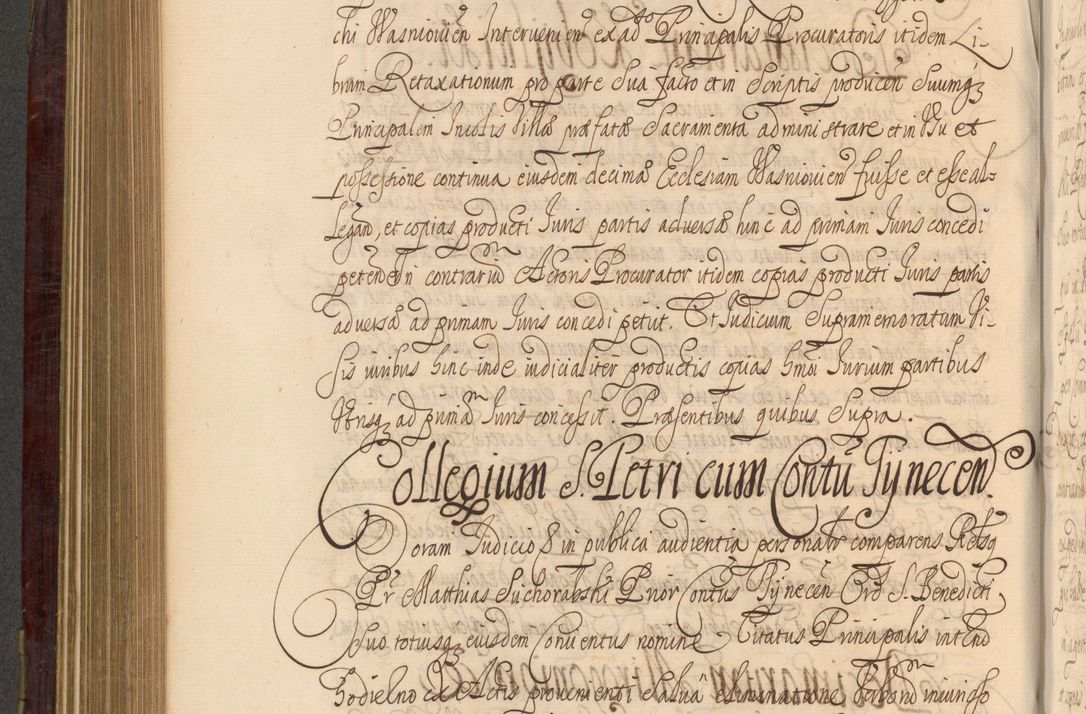 chi Wasniowien Intervenien ex adto Principalis Procuratoris itidem Li-
brum Retaxationum pro parte Sua facto et in Scriptis producen Suumq
Principalem Incolis Villæ præfatæ Sacramenta administrare et in Usu et
possessione continua eiusdem decimæ Ecclesiam Wasniowien fuisse et esse al-
legan, et copias producti Iuris partis adversæ hinc ad primam Iuris concedi
peten In contrariu Actoris Procurator itidem copias producti Iuris partis
adversæ ad primam Iuris concedi petiit. Et Iudicium Supramemoratum Vi-
sis iuribus hinc inde iudicialiter productis copias hmoi Iurium partibus
Utrisq ad primam Iuris concessit. Præsentibus quibus Supra.
Collegium S. Petri cum Contu Tynecen.
Coram Iudicio & in publica audientia personalr comparens Rdsq
Pr Matthias Suchorabski Prior Contus Tynecen Ord S. Benedicti
Suo totiusq eiusdem Conventus nomine Citatus Principalis intend
ex Actis provenienti salva eliminatione